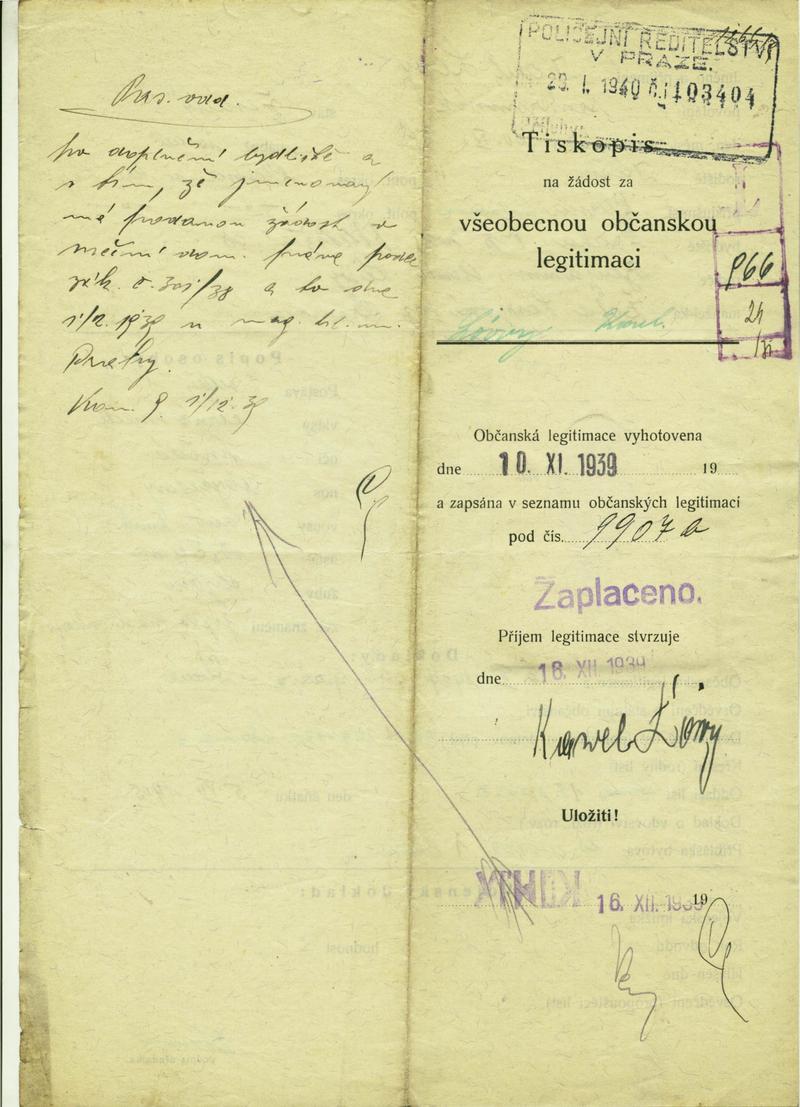 Pas. odd.
po doplnění bydliště a
s tím, že jmenovaný
má podanou žádost o
dom. práva podle
zák. č. a to dne
1/12. 1939 u mag. hl. m.
Prahy.
1/12. 39
POLICEJNÍ ŘEDITELSTVÍ
V PRAZE.
1940 č.j. 103404
Tiskopis
na žádost za
všeobecnou občanskou
legitimaci
966
24
Löwy Karel.
Občanská legitimace vyhotovena
dne 10. XI. 1939 19
a zapsána v seznamu občanských legitimací
pod čís. 9907 a
Zaplaceno.
Příjem legitimace stvrzuje
dne 16. XII. 1939
Karel Löwy
Uložiti!
16. XII. 1939 19